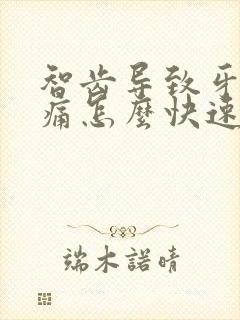 智齿导致牙
痛怎麼快速
端木諾晴